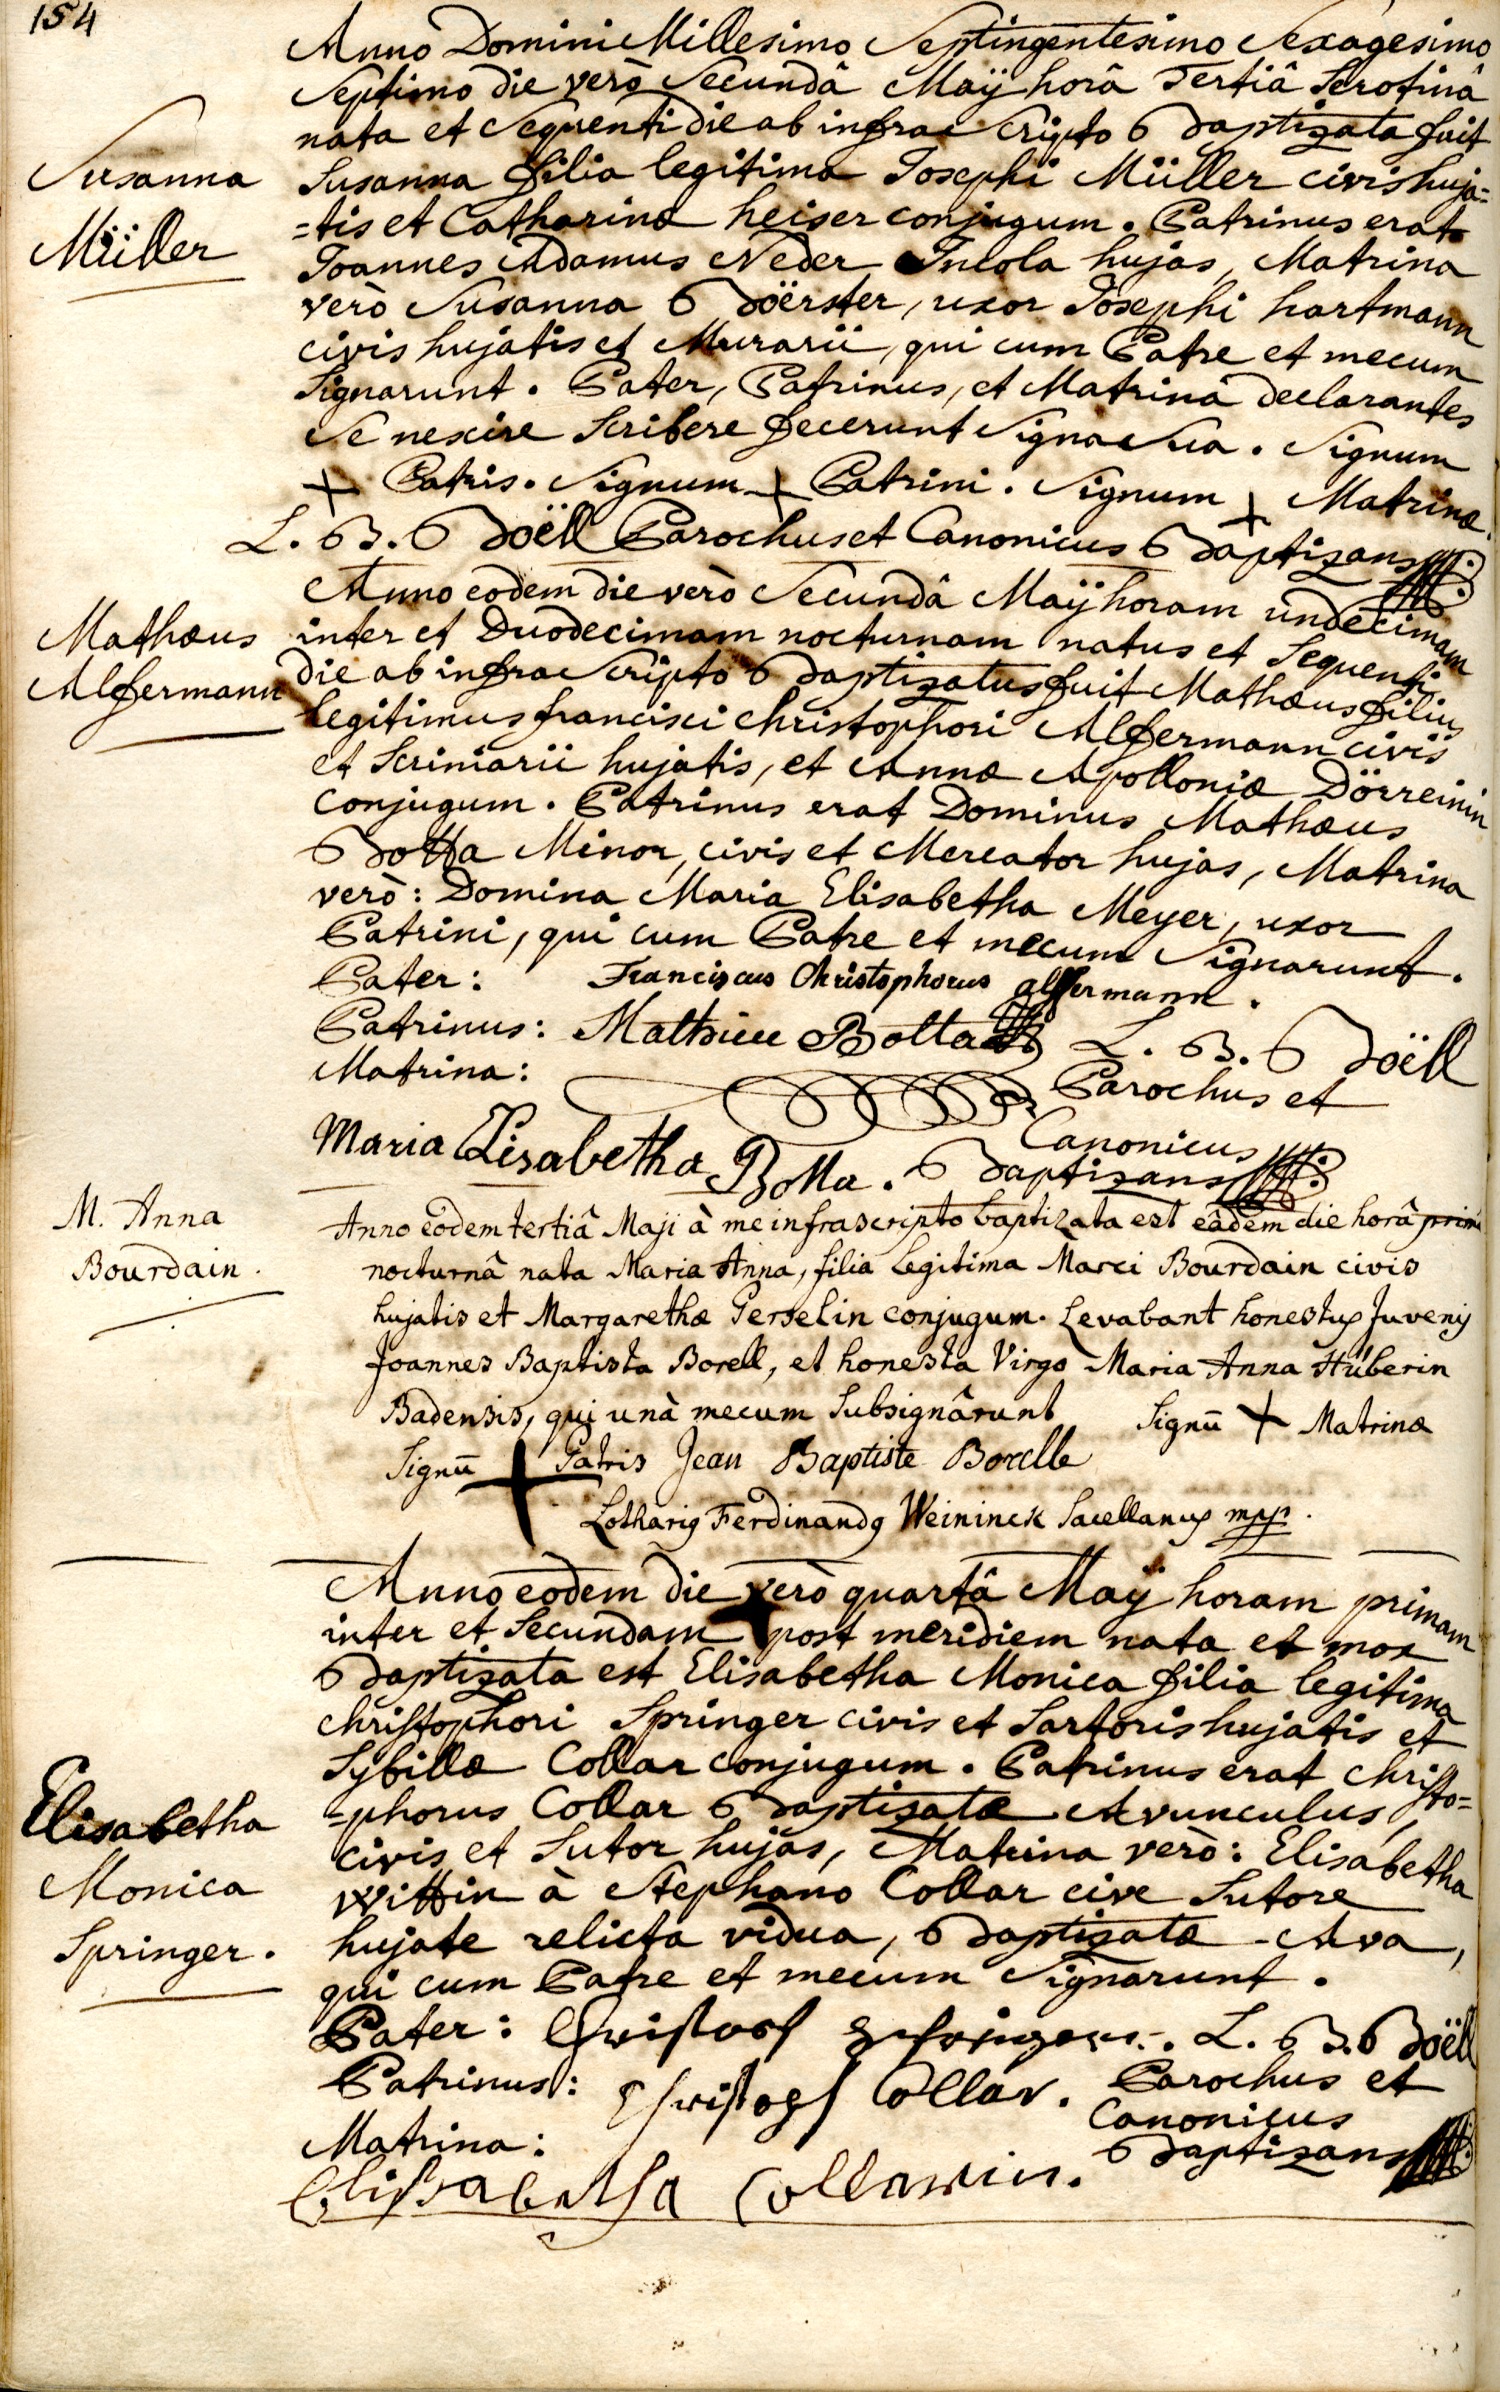 154
Anno Domini Millesimo Septingentesimo Sexagesimo
Septimo die verò Secundâ Maÿ horâ Tertiâ Serotinâ
nata et Sequenti die ab infrascripto Baptizata fuit
Susanna
Müller
Susanna filia legitima Josephi Müller civis huja=
=tis et Catharinæ heiser conjugum. Patrinus erat
Joannes Adamus Neder Incola hujas, Matrina
verò Susanna Boërster, uxor Josephi hartmann
civis hujatis et Murarii, qui cum Patre et mecum
Signarunt. Pater, Patrinus, et Matrina declarantes
Se nescire Scribere fecerunt Signa Sua. Signum
+ Patris. Signum + Patrini. Signum + Matrinæ.
L. B. Boëll Parochus et Canonicus Baptizans
Mathæus
Alffermann
Anno eodem die verò Secundâ Maÿ horam undecimam
inter et Duodecimam nocturnam natus et Sequenti
die ab infrascripto Baptizatus fuit Mathæus filius
legitimus francisci christophori Alffermann civis
et Scriniarii hujatis, et Annæ Apolloniæ Dörreinin
conjugum. Patrinus erat Dominus Mathæus
Botta Minor, civis et Mercator hujas, Matrina
verò: Domina Maria Elisabetha Meyer, uxor
Patrini, qui cum Patre et mecum Signarunt.
Pater: Franciscus Christophorus alffermann.
Patrinus: Mathieu Botta L. B. Boëll
Matrina: Parochus et
Maria Elisabetha Botta. Canonicus
Baptizans
M. Anna
Bourdain.
Anno eodem tertiâ Maji à me infrascripto baptizata est eâdem die horâ primâ
nocturnâ nata Maria Anna, filia Legitima Marci Bourdain civis
hujatis et Margarethæ Gerselin conjugum. Levabant honestus Juvenis
Joannes Baptista Borell, et honesta Virgo Maria Anna Huberin
Badensis, qui unà mecum Subsignârunt Signū + Matrinæ
Signū + Patris Jean Baptiste Borelle
Lotharis Ferdinandus Weininck Sacellanus mpp.
Anno eodem die verò quartâ Maÿ horam primam
inter et Secundam post meridiem nata et mox
Baptizata est Elisabetha Monica filia legitima
christophori Springer civis et Sartoris hujatis et
Sybillæ Collar conjugum. Patrinus erat christo=
Elisabetha
Monica
Springer.
=phorus Collar Baptizatæ Avunculus,
civis et Sutor hujas, Matrina verò: Elisabetha
Wittin à Stephano Collar cive Sutore
hujate relicta vidua, Baptizatæ Ava,
qui cum Patre et mecum Signarunt.
Pater: Christoph Springer. L. B. Boëll
Patrinus: Christoph Collar. Parochus et
Canonicus
Matrina: Baptizans
Elissabetha Collarin.